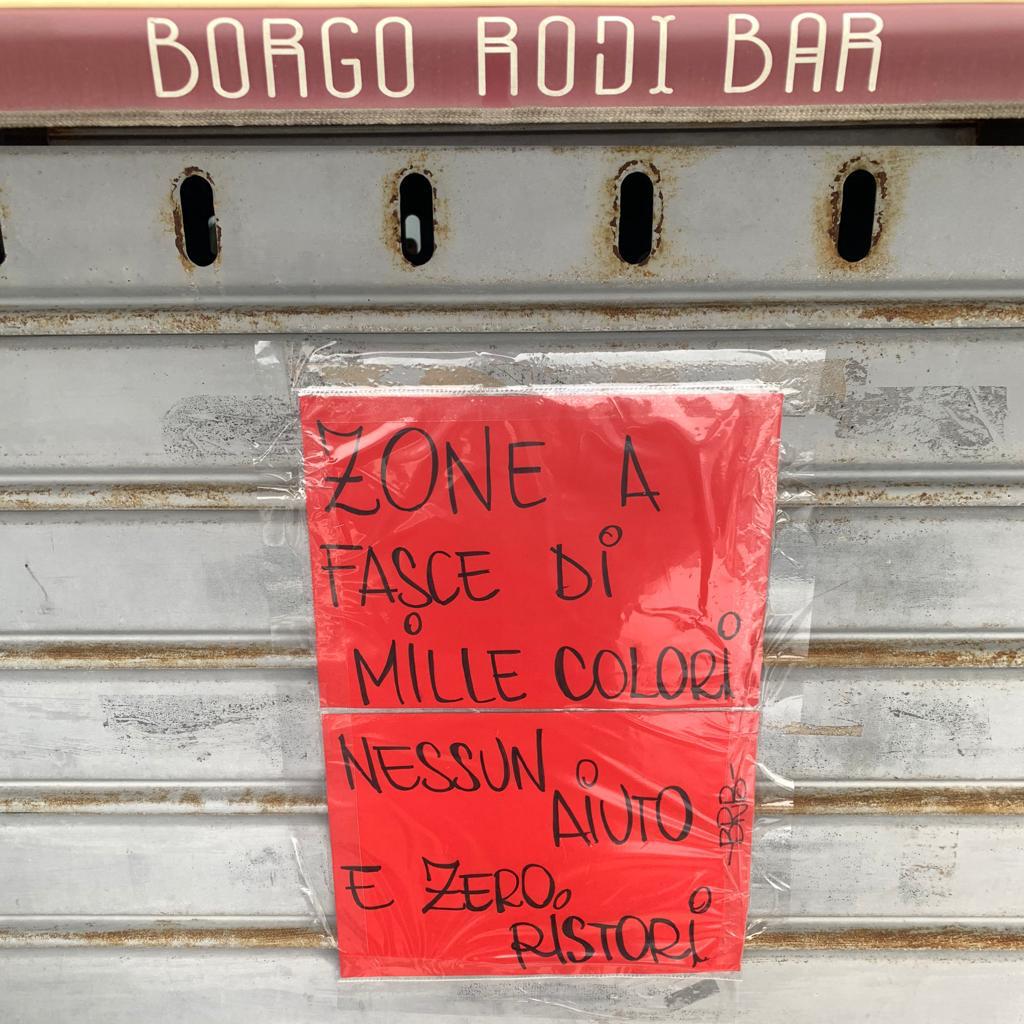 BORGO RODI BAR
ZONE A
FASCE DI
MILLE COLORI
NESSUN
AIUTO
E ZERO
RISTORI
-BRB-